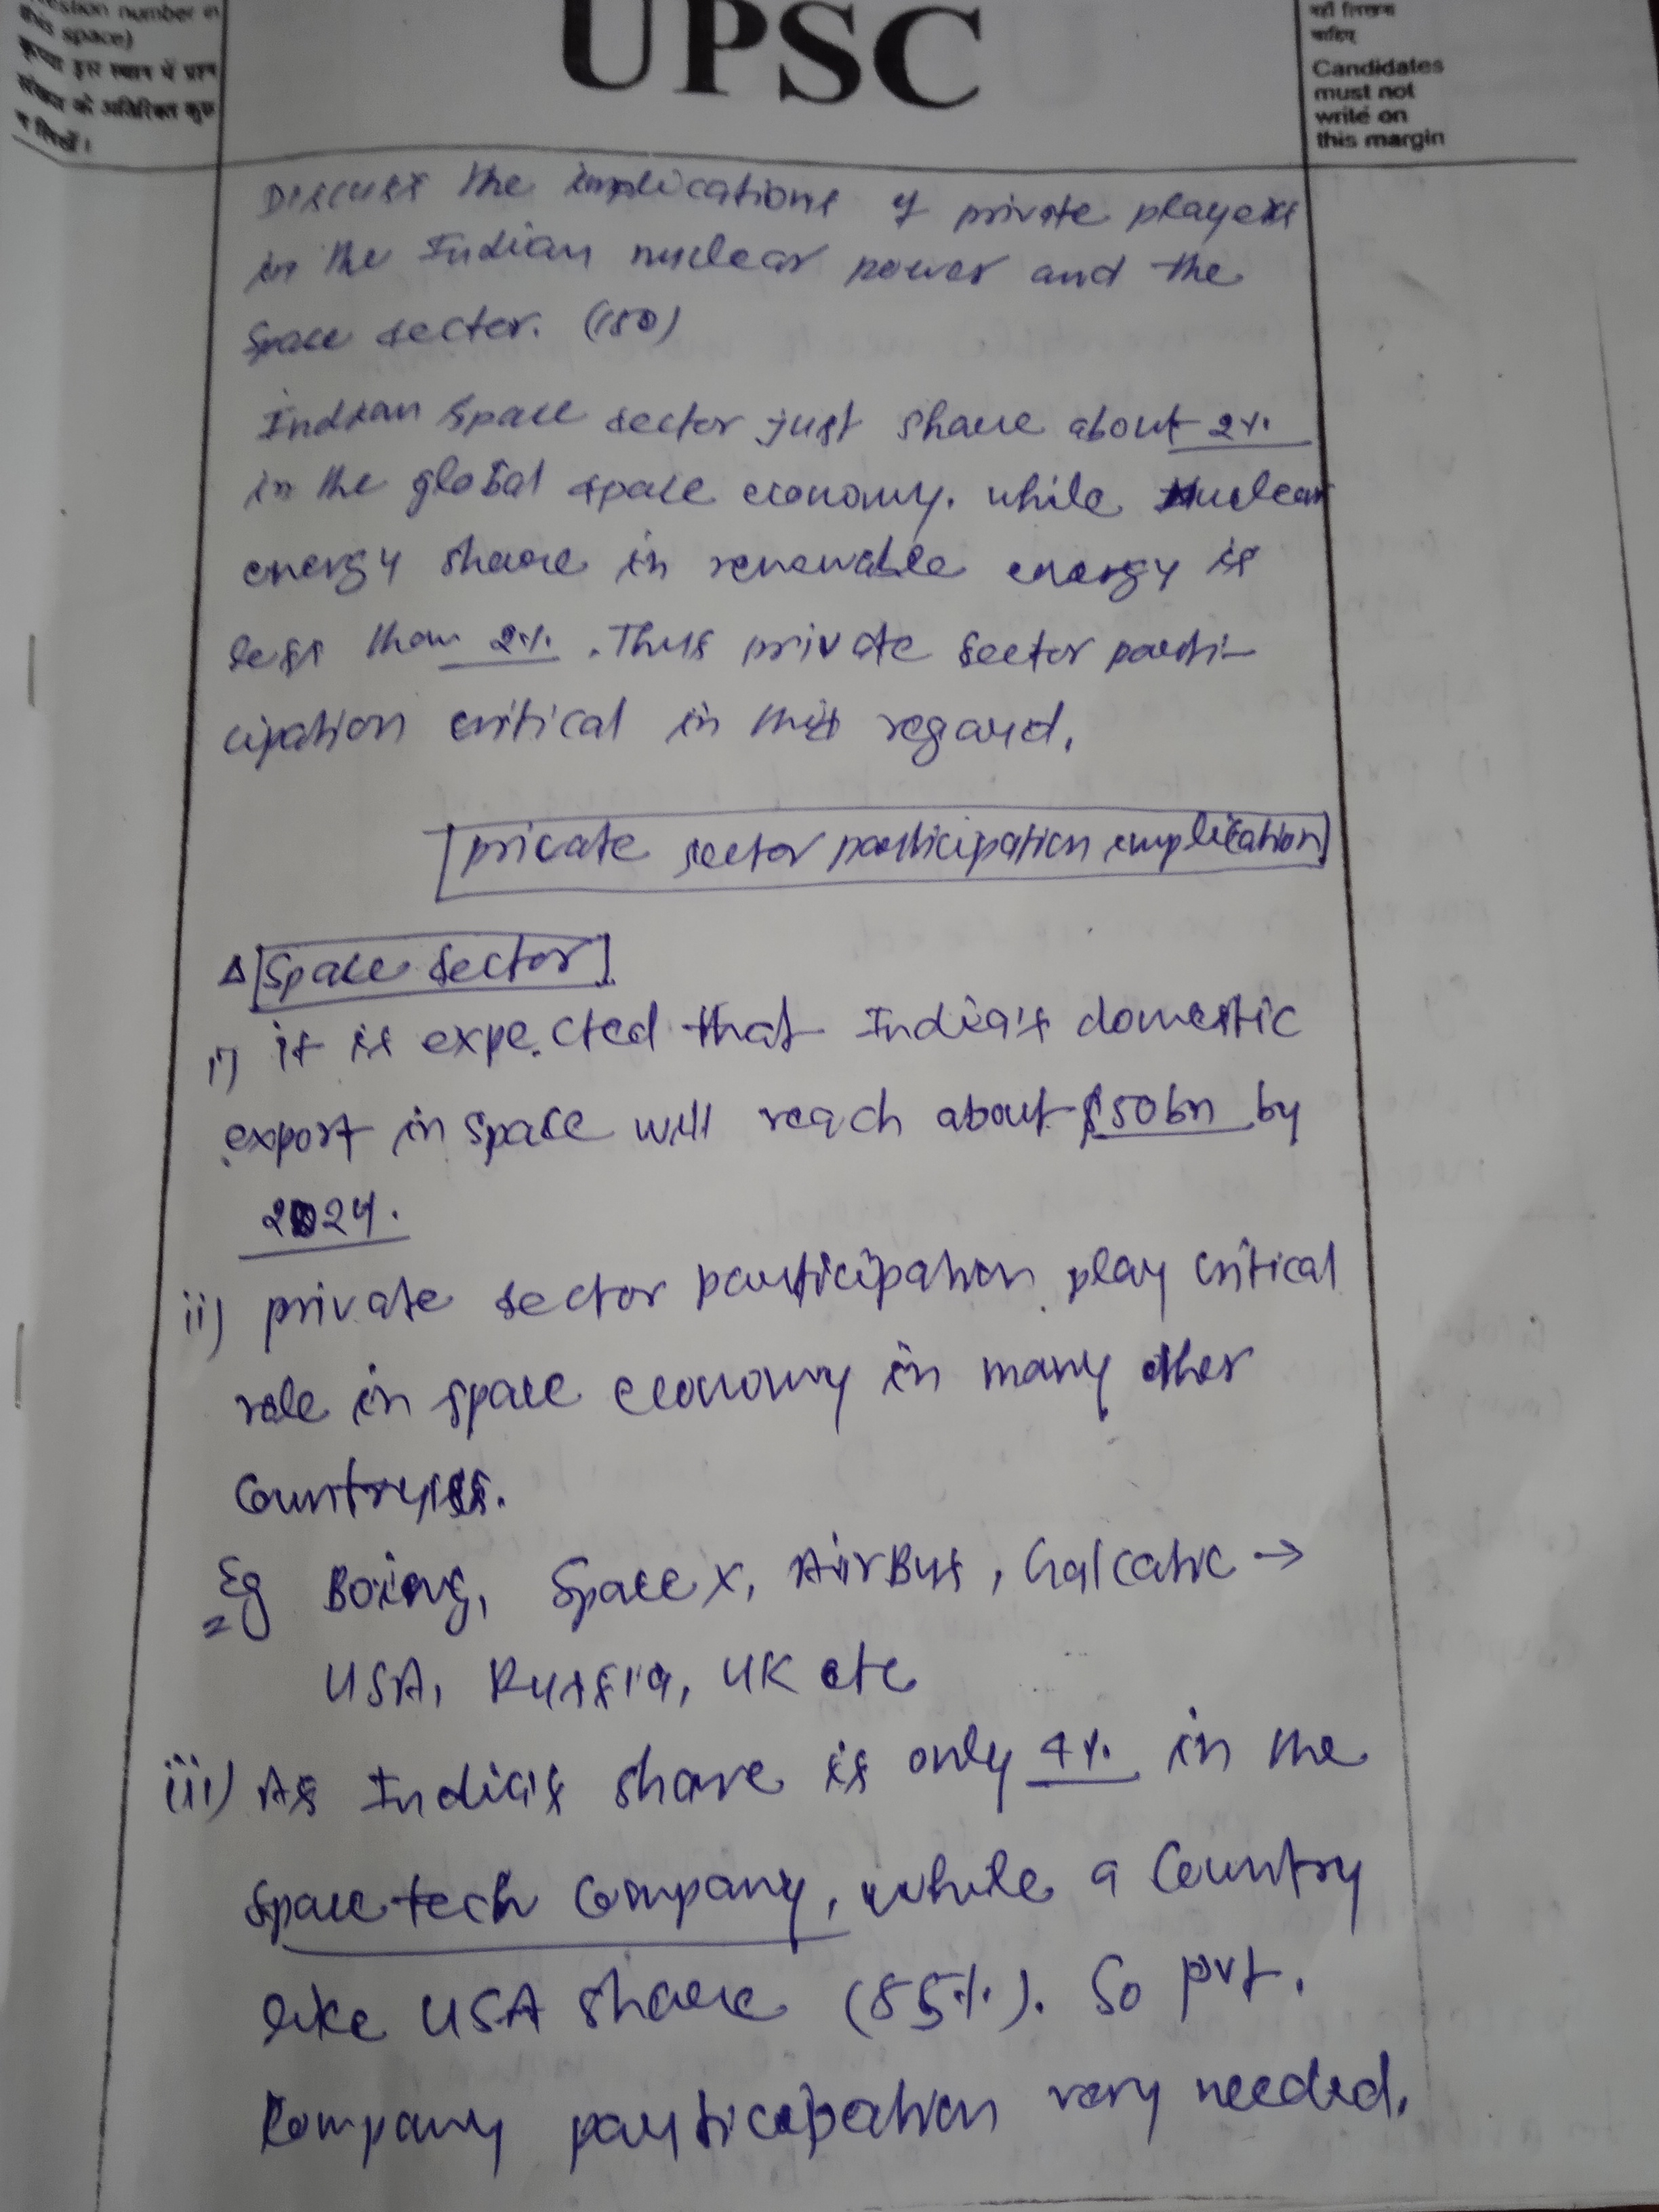 estion number in
this space)
कृपया इस स्थान में प्रश्न
संख्या के अतिरिक्त कुछ
न लिखें।
UPSC
नहीं लिखना
चाहिए
Candidates
must not
write on
this margin
Discuss the implications of private players
in the Indian nuclear power and the
Space sector. (150)
Indian Space sector just share about 2%
in the global space economy. while Nuclear
energy share in renewable energy is
less than 2%. Thus private sector parti-
cipation critical in this regard.
private sector participation implication
Δ [Space Sector]
i) it is expected that India's domestic
export in space will reach about $50bn by
2024.
ii) private sector participation play critical
role in space economy in many other
Countryies.
Eg Boeing, Space X, AirBus, Galcatic →
USA, Russia, UK etc
iii) As India's share is only 4% in the
Space tech Company, while a Country
like USA share (55%). So pvt.
Company participation very needed.